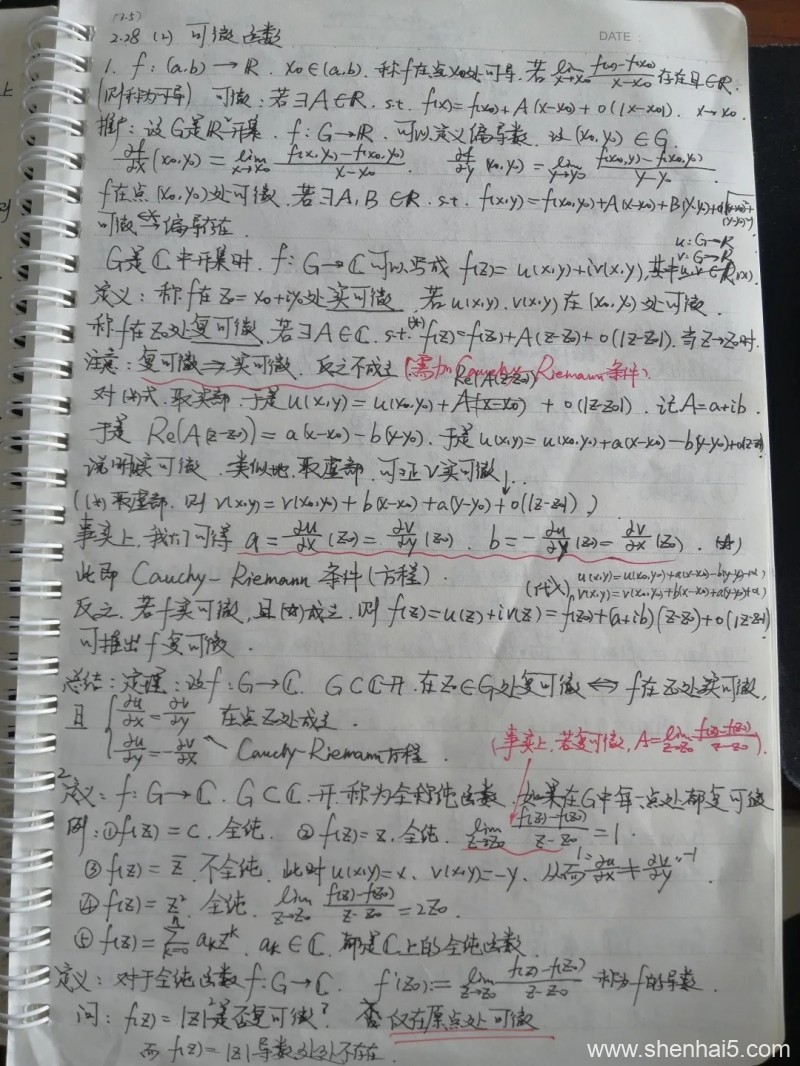 (2.5)
DATE:
2.28 (2) 可微函数
1. f: (a,b) → R. x₀∈(a,b). 称f在点x₀处可导. 若 lim_{x→x₀} (f(x)-f(x₀))/(x-x₀) 存在且∈R.
(则称为可导) 可微: 若∃A∈R. s.t. f(x)=f(x₀)+A(x-x₀)+o(|x-x₀|). x→x₀.
推广: 设G是R²开集. f: G→R. 可以定义偏导数. 设(x₀,y₀)∈G.
∂f/∂x (x₀,y₀) = lim_{x→x₀} (f(x,y₀)-f(x₀,y₀))/(x-x₀). ∂f/∂y (x₀,y₀) = lim_{y→y₀} (f(x₀,y)-f(x₀,y₀))/(y-y₀)
f在点(x₀,y₀)处可微. 若∃A,B∈R. s.t. f(x,y)=f(x₀,y₀)+A(x-x₀)+B(y-y₀)+o(√((x-x₀)²+(y-y₀)²))
可微 偏导存在.
u: G→R
v: G→R
G是C中开集时. f: G→C可以写成 f(z)=u(x,y)+iv(x,y), 其中u,v∈R
定义: 称f在z₀=x₀+iy₀处实可微. 若u(x,y). v(x,y)在(x₀,y₀)处可微.
称f在z₀处复可微. 若∃A∈C. s.t. (*) f(z)=f(z₀)+A(z-z₀)+o(|z-z₀|). 当z→z₀时.
注意: 复可微⇒实可微. 反之不成立 (需加Cauchy-Riemann条件).
Re(A(z-z₀))
对(*)式. 取实部. 于是u(x,y)=u(x₀,y₀)+A(x-x₀)+o(|z-z₀|). 记A=a+ib.
于是 Re(A(z-z₀))=a(x-x₀)-b(y-y₀). 于是u(x,y)=u(x₀,y₀)+a(x-x₀)-b(y-y₀)+o(|z-z₀|)
说明u实可微. 类似地. 取虚部. 可证v实可微.
((*)取虚部. 则v(x,y)=v(x₀,y₀)+b(x-x₀)+a(y-y₀)+o(|z-z₀|))
事实上, 我们可得 a=∂u/∂x(z₀)=∂v/∂y(z₀). b=-∂u/∂y(z₀)=∂v/∂x(z₀). (☆)
此即 Cauchy-Riemann 条件(方程).
(代入) u(x,y)=u(x₀,y₀)+a(x-x₀)-b(y-y₀)+o()
v(x,y)=v(x₀,y₀)+b(x-x₀)+a(y-y₀)+o()
反之. 若f实可微, 且(☆)成立. 则f(z)=u(z)+iv(z)=f(z₀)+(a+ib)(z-z₀)+o(|z-z₀|)
可推出f复可微.
总结: 定理: 设f: G→C. G⊂C开. 在z₀∈G处复可微⇔f在z₀处实可微,
且 { ∂u/∂x=∂v/∂y 在点z₀处成立.
∂u/∂y=-∂v/∂x Cauchy-Riemann方程.
(事实上, 若复可微, A=lim_{z→z₀} (f(z)-f(z₀))/(z-z₀)).
2 定义: f: G→C. G⊂C 开. 称为全纯函数. 如果在G中每一点处都复可微
例: ①f(z)=c. 全纯. ②f(z)=z. 全纯. lim_{z→z₀} (f(z)-f(z₀))/(z-z₀)=1.
③f(z)=z̄ 不全纯. 此时u(x,y)=x. v(x,y)=-y. 从而 1=∂u/∂x≠∂v/∂y=-1.
④f(z)=z². 全纯. lim_{z→z₀} (f(z)-f(z₀))/(z-z₀)=2z₀.
⑤f(z)=∑_{k=0}^{n} aₖzᵏ. aₖ∈C. 都是C上的全纯函数.
定义: 对于全纯函数f: G→C. f'(z₀):=lim_{z→z₀} (f(z)-f(z₀))/(z-z₀) 称为f的导数.
问: f(z)=|z|²是否复可微? 否 仅在原点处可微
而f(z)=|z|导数处处不存在.
www.shenhai5.com